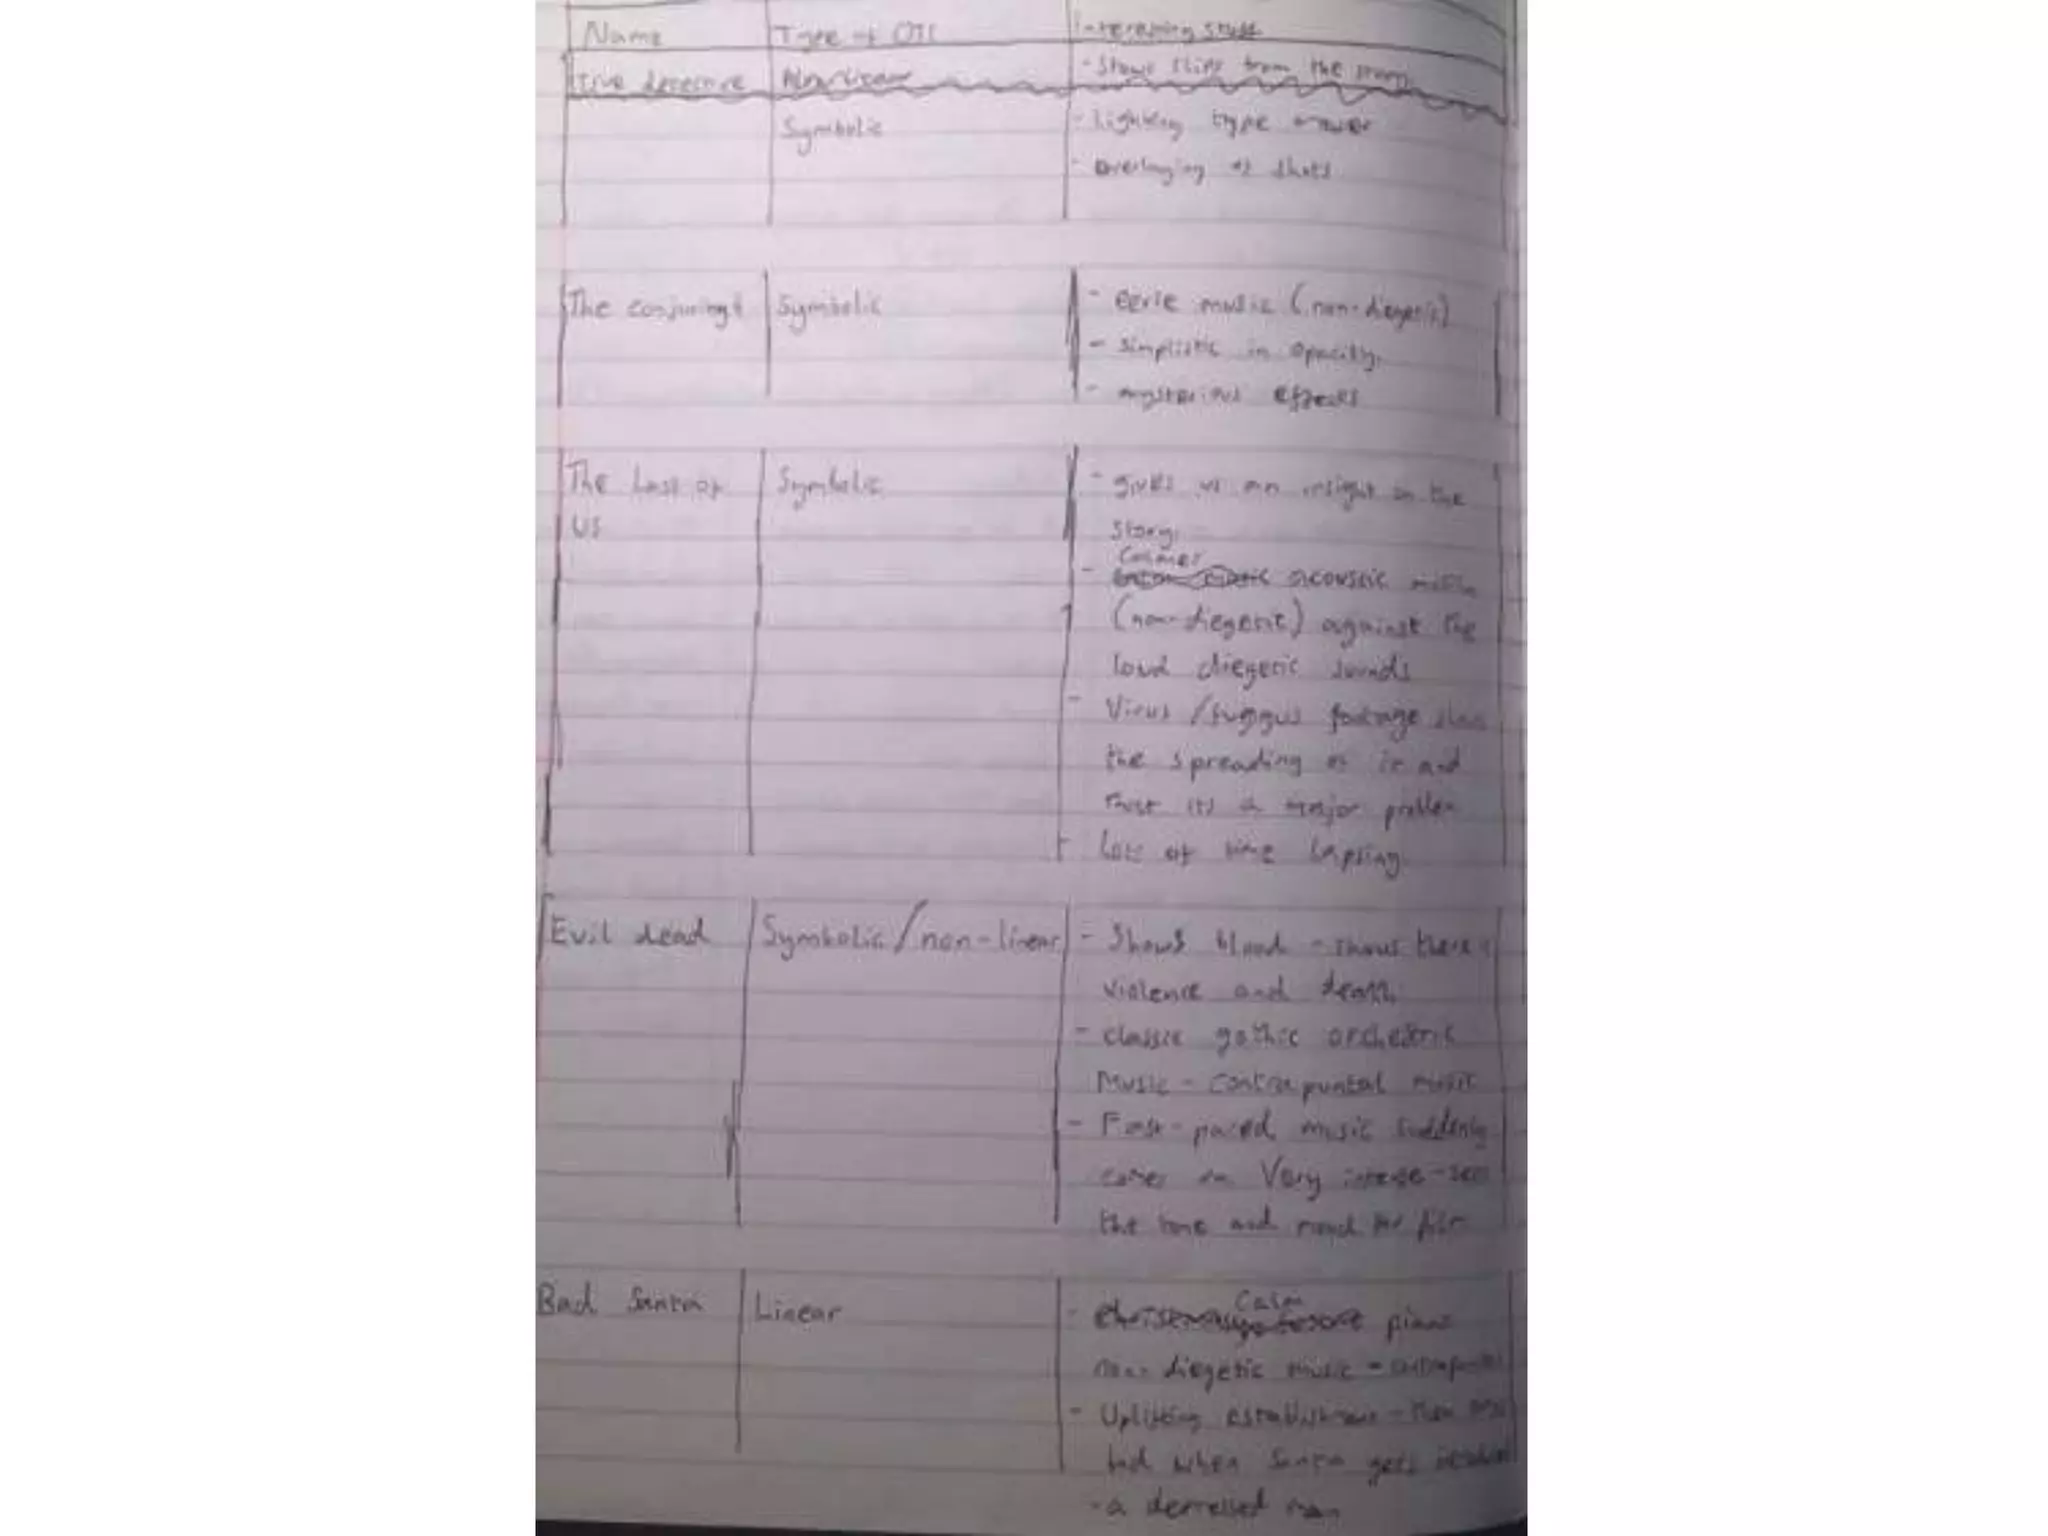 Name Type of OTS interesting stuff
True detective - Shows clips from the
Symbolic - Lighting type
- overlaying of shots
The conjuring Symbolic - eerie music (non-diegetic)
- simplistic in opacity.
- mysterious effects
The Last of Symbolic - gives us an insight on the
US story.
Calmer
- acoustic music
(non-diegetic) against the
loud diegetic sounds
- Virus / fuggus footage
the spreading of it and
that its a major problem
- Lots of time lapsing.
Evil dead Symbolic / non-linear - Shows blood - shows there
violence and death.
- classic gothic orchestric
Music - contrapuntal music
- Fast-paced music suddenly
comes on Very intense - sets
the tone and mood for film
Bad Santa Linear Calm
- piano
non-diegetic music -
- Uplifting - then
bad when Santa gets
- a depressed man